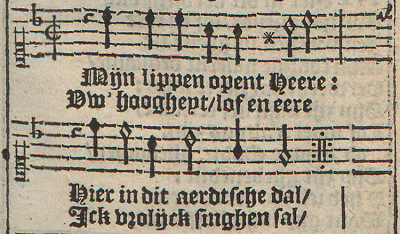 Mijn lippen opent Heere:
Vw' hoogheyt/lof en eere
Hier in dit aerdtsche dal/
Ick vrolijck singhen sal/